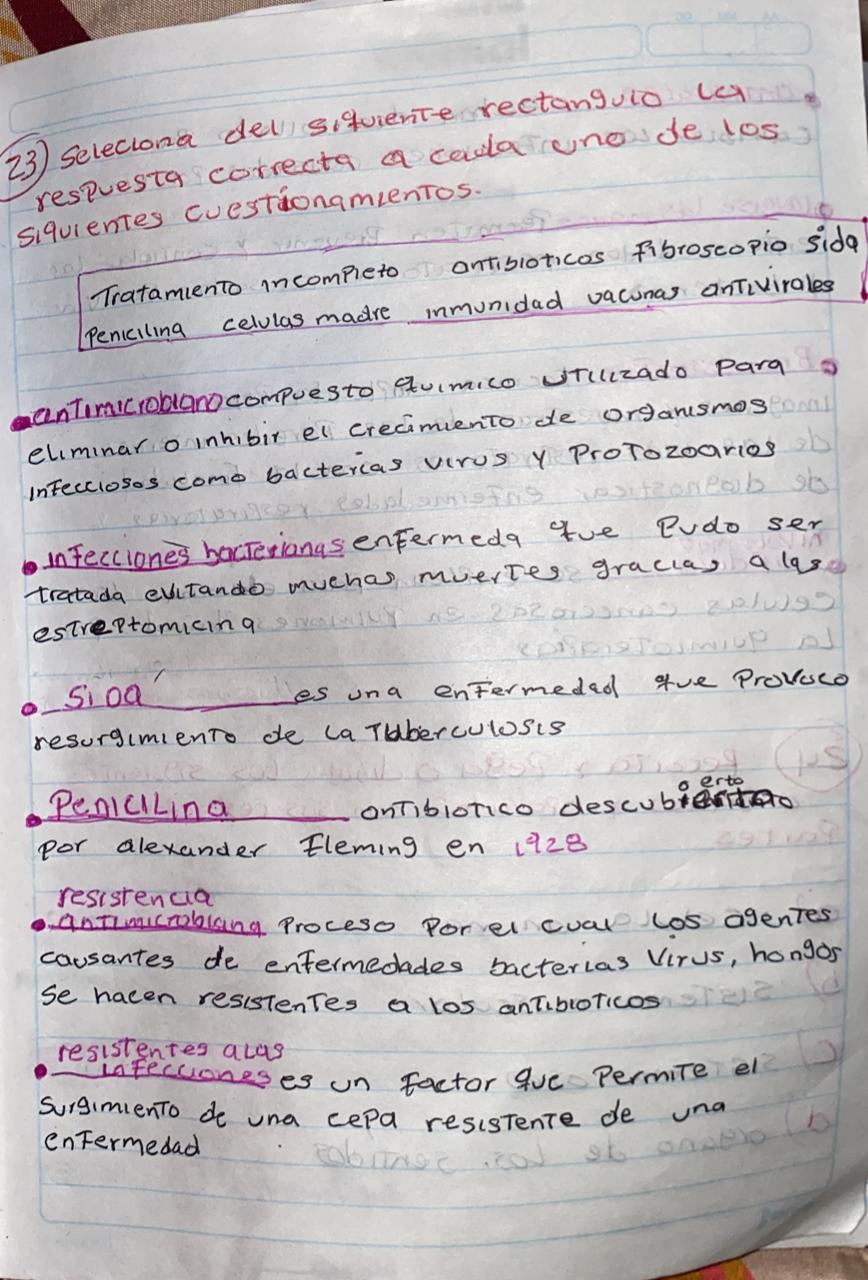 23) Seleciona del siguiente rectangulo la
respuesta correcta a cada uno de los
siguientes cuestionamientos.
Tratamiento incompleto antibioticos Fibroscopio Sida
Penicilina celulas madre inmunidad vacunas antivirales
• antimicrobiano compuesto quimico utilizado para
eliminar o inhibir el crecimiento de organismos
infecciosos como bacterias virus y Protozoarios
• infecciones bacterianas enfermeda que Pudo ser
tratada evitando muchas muertes gracias a las
estreptomicina
• Sida es una enfermedad que Provoco
resurgimiento de la Tuberculosis
• Penicilina antibiotico descubierto
por alexander Fleming en 1928
resistencia
• antimicrobiana Proceso Por el cual los agentes
causantes de enfermedades bacterias Virus, hongos
se hacen resistentes a los antibioticos
resistentes alas
• infecciones es un factor que Permite el
surgimiento de una cepa resistente de una
enfermedad